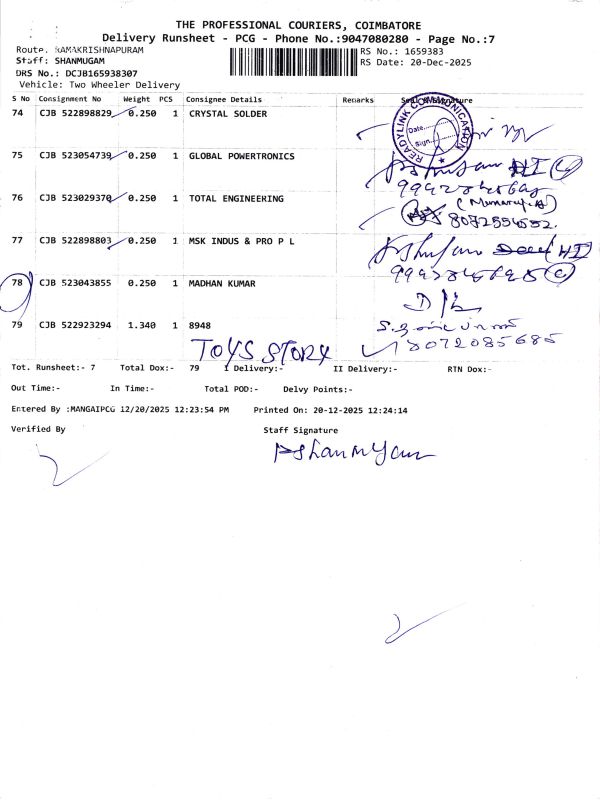 THE PROFESSIONAL COURIERS, COIMBATORE
Delivery Runsheet - PCG - Phone No.:9047080280 - Page No.:7
Route. RAMAKRISHNAPURAM
RS No.: 1659383
Staff: SHANMUGAM
RS Date: 20-Dec-2025
DRS No.: DCJB165938307
Vehicle: Two Wheeler Delivery
S No Consignment No Weight PCS Consignee Details Remarks Seal & Signature
74 CJB 522898829 0.250 1 CRYSTAL SOLDER
READYLINK COMMUNICATION
Date
Sign
75 CJB 523054739 0.250 1 GLOBAL POWERTRONICS
76 CJB 523029370 0.250 1 TOTAL ENGINEERING
77 CJB 522898803 0.250 1 MSK INDUS & PRO P L
78 CJB 523043855 0.250 1 MADHAN KUMAR
79 CJB 522923294 1.340 1 8948
TOYS STORY
8072085685
Tot. Runsheet:- 7 Total Dox:- 79 I Delivery:- II Delivery:- RTN Dox:-
Out Time:- In Time:- Total POD:- Delvy Points:-
Entered By :MANGAIPCG 12/20/2025 12:23:54 PM Printed On: 20-12-2025 12:24:14
Verified By Staff Signature